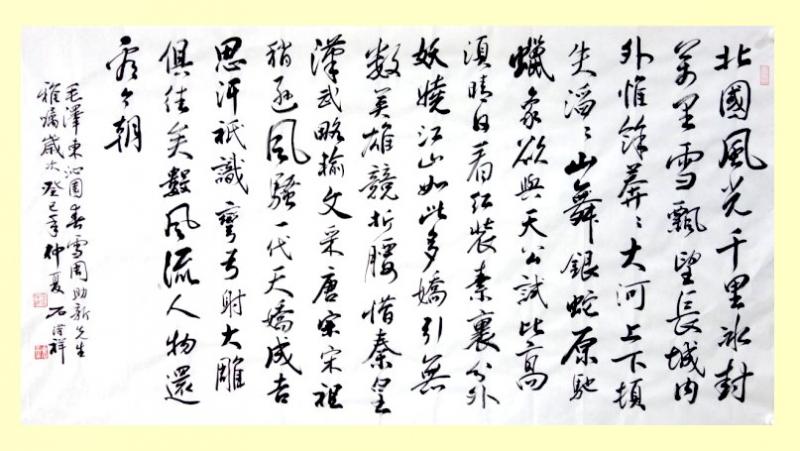 北國風光千里冰封
萬里雪飄望長城內
外惟餘莽〻大河上下頓
失滔〻山舞銀蛇原馳
蠟象欲與天公試比高
須晴日看紅裝素裹分外
妖嬈江山如此多嬌引無
數英雄競折腰惜秦皇
漢武略輸文采唐宗宋祖
稍遜風騷一代天嬌成吉
思汗祇識彎弓射大雕
俱往矣數風流人物還
看今朝
毛澤東沁園春雪周助新先生
雅囑歲次癸巳年仲夏石澄祥